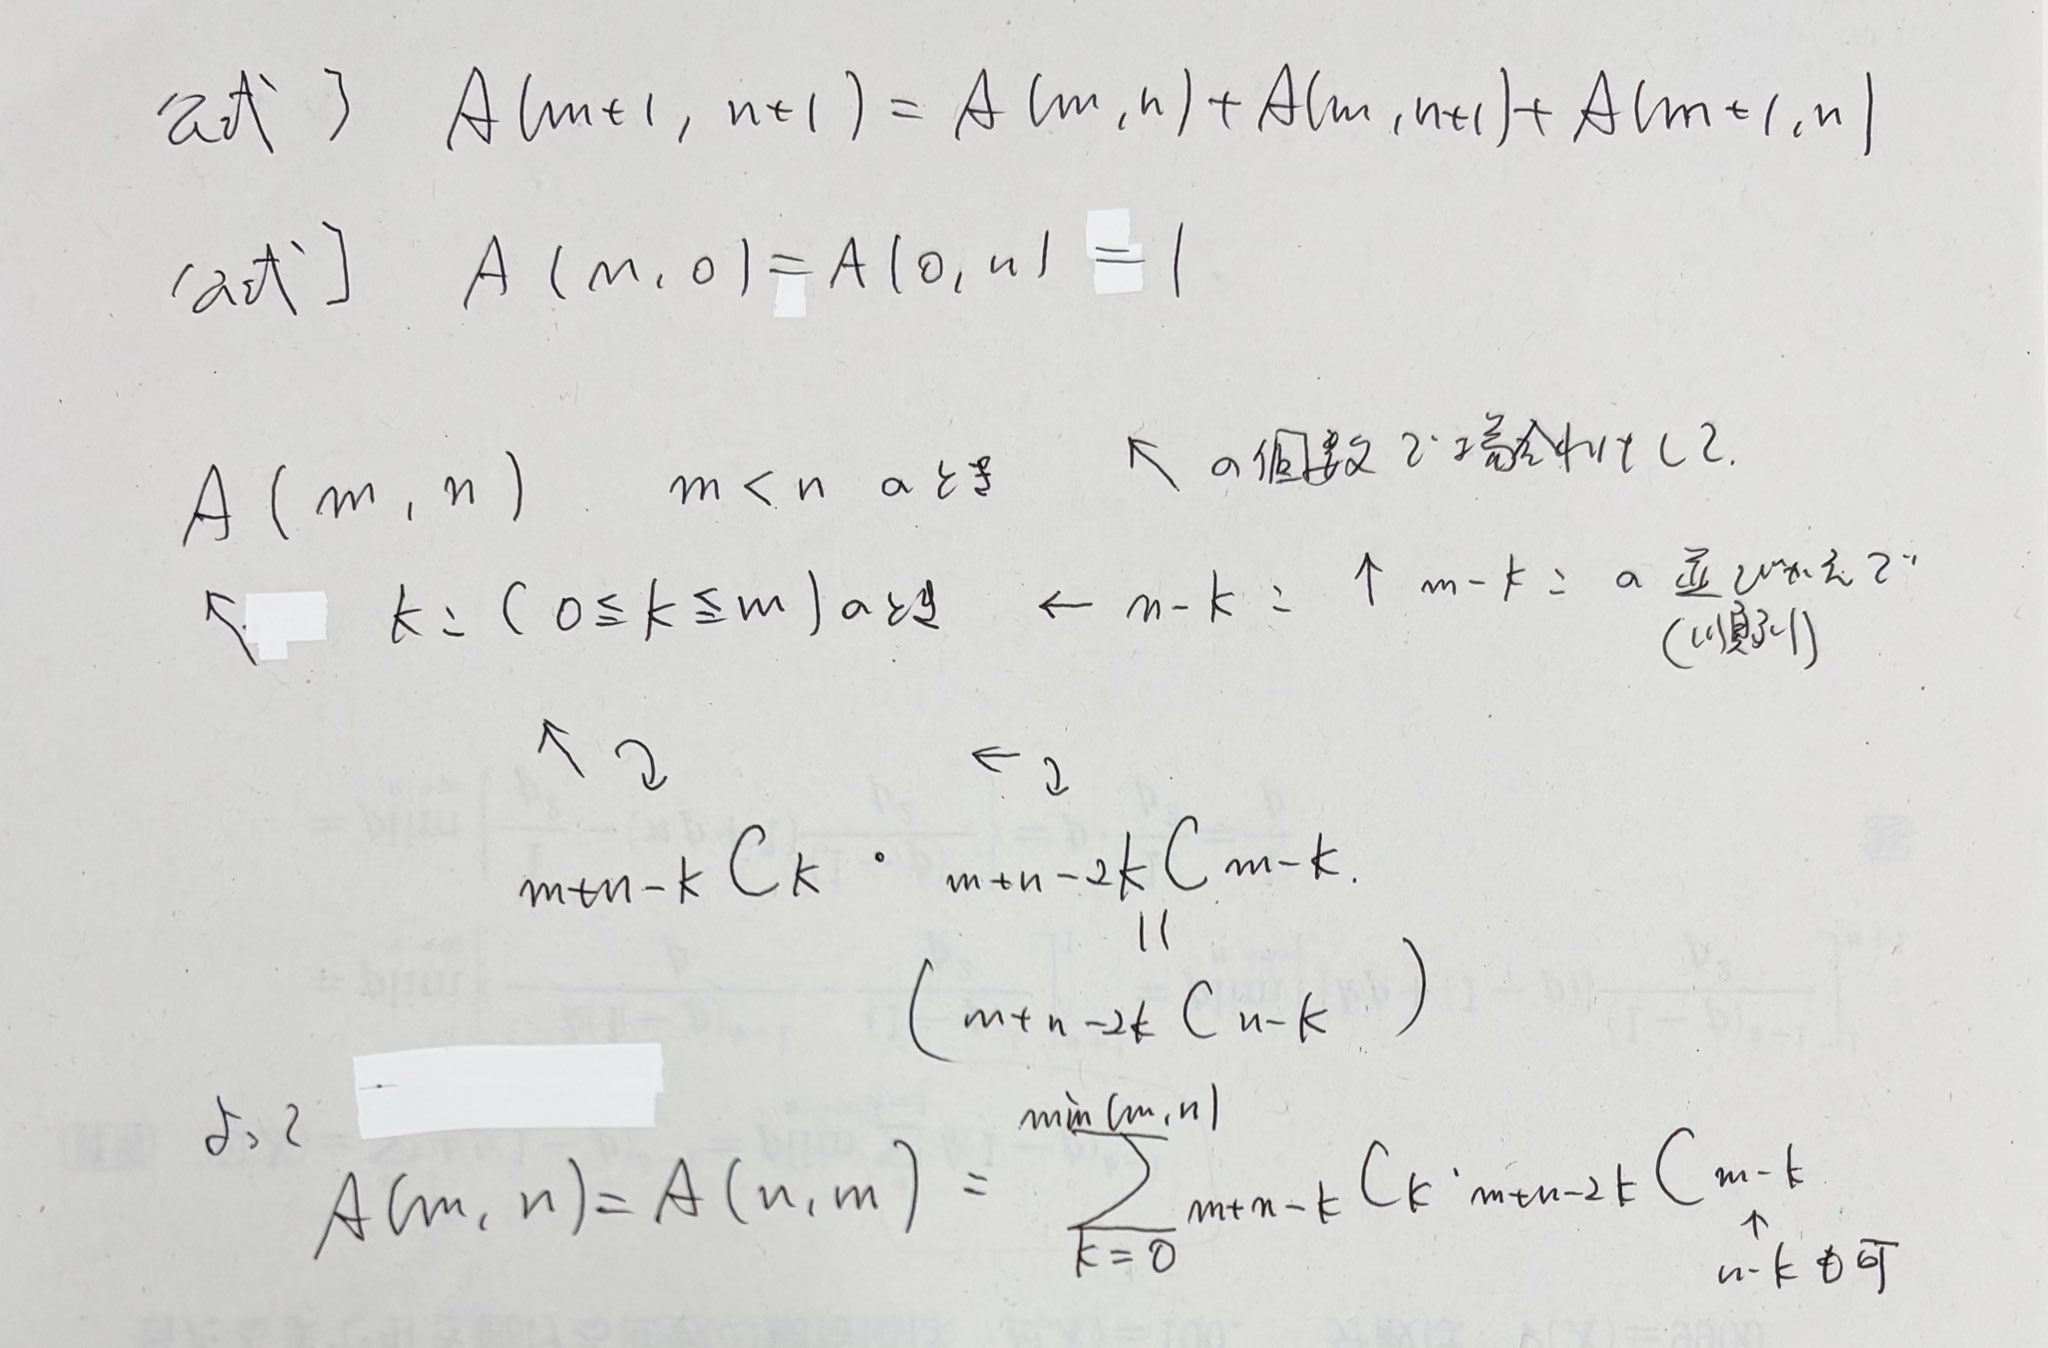 公式〕 A(m+1, n+1) = A(m,n)+A(m,n+1)+A(m+1,n)
公式〕 A(m,0)=A(0,n) = 1
A(m,n) m<n のとき ↖ の個数で場合わけして.
↖ kコ (0≦k≦m)のとき ← n-kコ ↑ m-kコ の 並びかえで
(順列)
↖ ←
m+n-k C k · m+n-2k C m-k.
||
( m+n-2k C n-k )
よって
A(m,n)=A(n,m) = min(m,n) Σ k=0 m+n-k C k · m+n-2k C m-k
↑
n-kも可